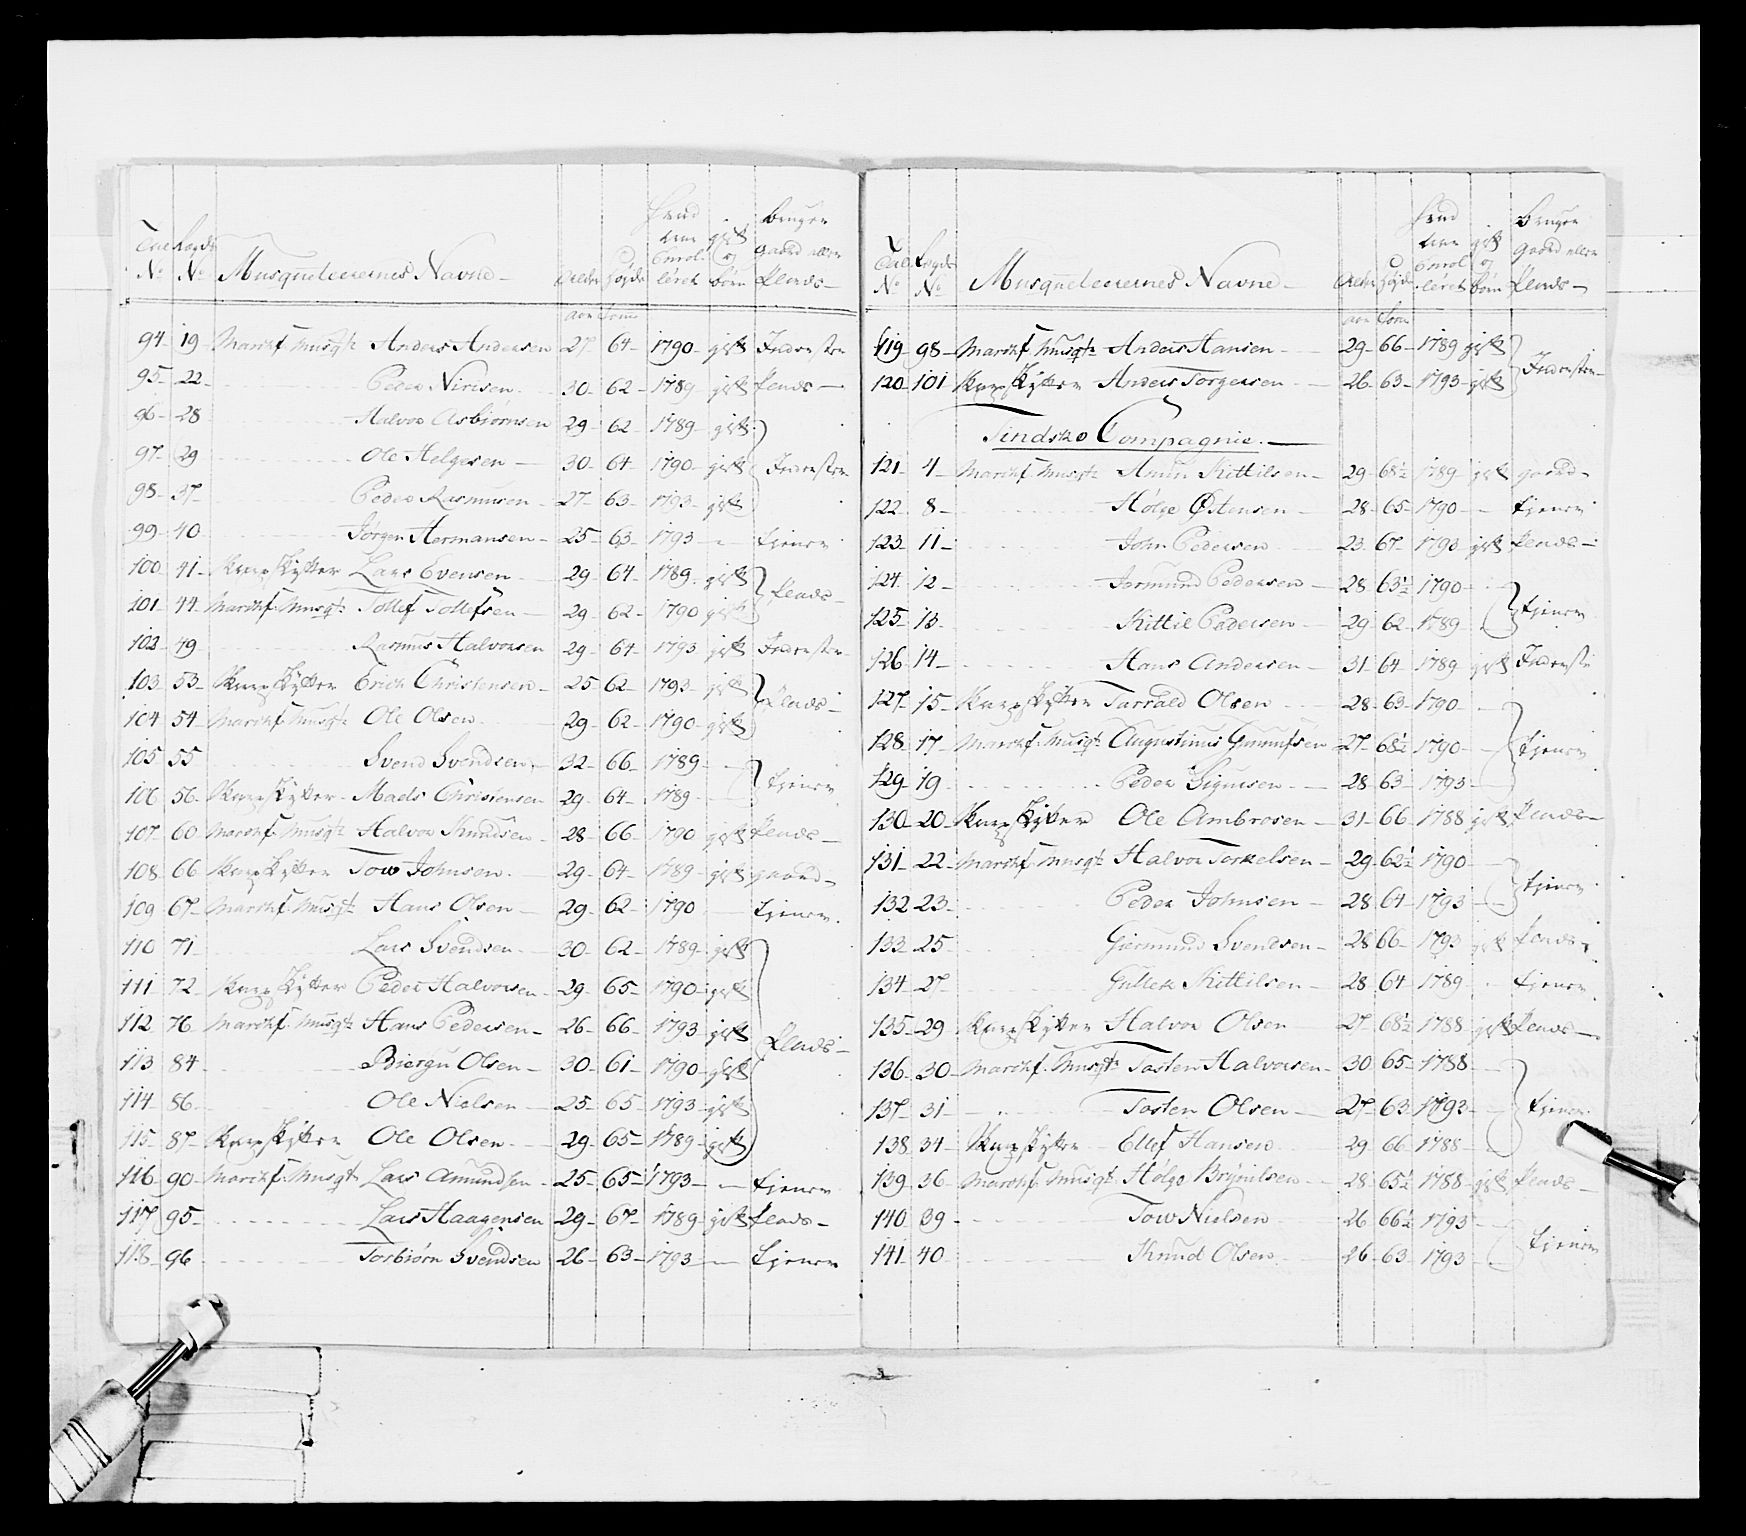 Tal No Lægds No Musqueteerernes Navne Alder Høyde hvad tiid Enrolleret gift og børn bruger gaard eller Plads
aar tom
94 19 Markf. Musqt: Anders Andersen 27 64 1790 gift Inderster
95 22 Peder Nirisen 30 62 1789 gift Plads
96 28 Halvor Asbiørnsen 29 62 1789 gift
97 29 Ole Helgesen 30 64 1790 gift Inderster
98 37 Peder Rasmusen 27 63 1793 gift
99 40 Jørgen Hermansen 25 63 1793 - tjener
100 41 Knap Skytter Lars Evensen 29 64 1789 gift
101 44 Markf. Musqt: Tollef Tollefsen 29 62 1790 gift Plads
102 49 Rasmus Halvorsen 29 64 1793 gift Inderster
103 53 Knap Skytter Erich Christensen 25 62 1793 gift
104 54 Markf Musqt: Ole Olsen 29 62 1790 gift Plads
105 55 Svend Svendsen 32 66 1789 -
106 56 Knap Skytter Mads Christensen 29 64 1789 - tjener
107 60 Markf. Musqt: Halvor Knudsen 28 66 1790 gift Plads
108 66 Knap Skytter Tow Johnsen 29 64 1789 gift gaard
109 67 Markf. Musqt: Hans Olsen 29 62 1790 - tjener
110 71 Lars Svendsen 30 62 1789 gift
111 72 Knap Skytter Peder Halvorsen 29 65 1790 gift
112 76 Markf. Musqt: Hans Pedersen 26 66 1793 gift Plads
113 84 Biergu Olsen 30 61 1790 gift
114 86 Ole Nielsen 25 65 1793 gift
115 87 Knap Skytter Ole Olsen 29 65 1789 gift
116 90 Markf. Musqt Lars Amundsen 25 65 1793 - tjener
117 95 Lars Haagensen 29 67 1789 gift Plads
118 96 Torbiørn Svendsen 26 63 1793 - tjener
Tal No Lægds No Musqueteerernes Navne Alder Høyde hvad tiid Enrolleret gift og børn bruger gaard eller Plads
aar tom
119 98 Markf Musqt: Anders Hansen 29 66 1789 gift
120 101 Knap Skytter Anders Torgersen 26 63 1793 gift Inderster
Tindske Compagnie.
121 4 Markf Musqt: Amun Kittilsen 29 68½ 1789 gift gaard
122 8 Holge Østensen 28 65 1790 - tjener
123 11 John Pedersen 23 67 1793 gift Plads
124 12 Jormund Pedersen 28 63½ 1790 -
125 13 Kittil Pedersen 29 62 1789 - tjener
126 14 Hans Andersen 31 64 1789 gift Inderste
127 15 Knap Skytter Tarrald Olsen 28 63 1790 -
128 17 Markf. Musqt: Augustinus Gunnufsen 27 68½ 1790 - tjener
129 19 Peder Sigursen 28 63 1793 -
130 20 Knap Skytter Ole Ambrosen 31 66 1788 gift Plads
131 22 Markf Musqt: Halvor Torkelsen 29 62½ 1790 -
132 23 Peder Johnsen 28 64 1793 - tjener
133 25 Giermund Svendsen 28 66 1793 gift Plads
134 27 Gullek Kittilsen 28 64 1789 - tjener
135 29 Knap Skytter Halvor Olsen 27 68½ 1788 gift Plads
136 30 Markf. Musqt: Tosten Halvorsen 30 65 1788 -
137 31 Tosten Olsen 27 63 1793 - tjener
138 34 Knap Skytter Ellef Hansen 29 66 1788 -
139 36 Markf. Musqt. Holge Brynilsen 28 65½ 1788 gift Plads
140 39 Tow Nielsen 26 66½ 1793 -
141 40 Knud Olsen 26 63 1793 - tjener